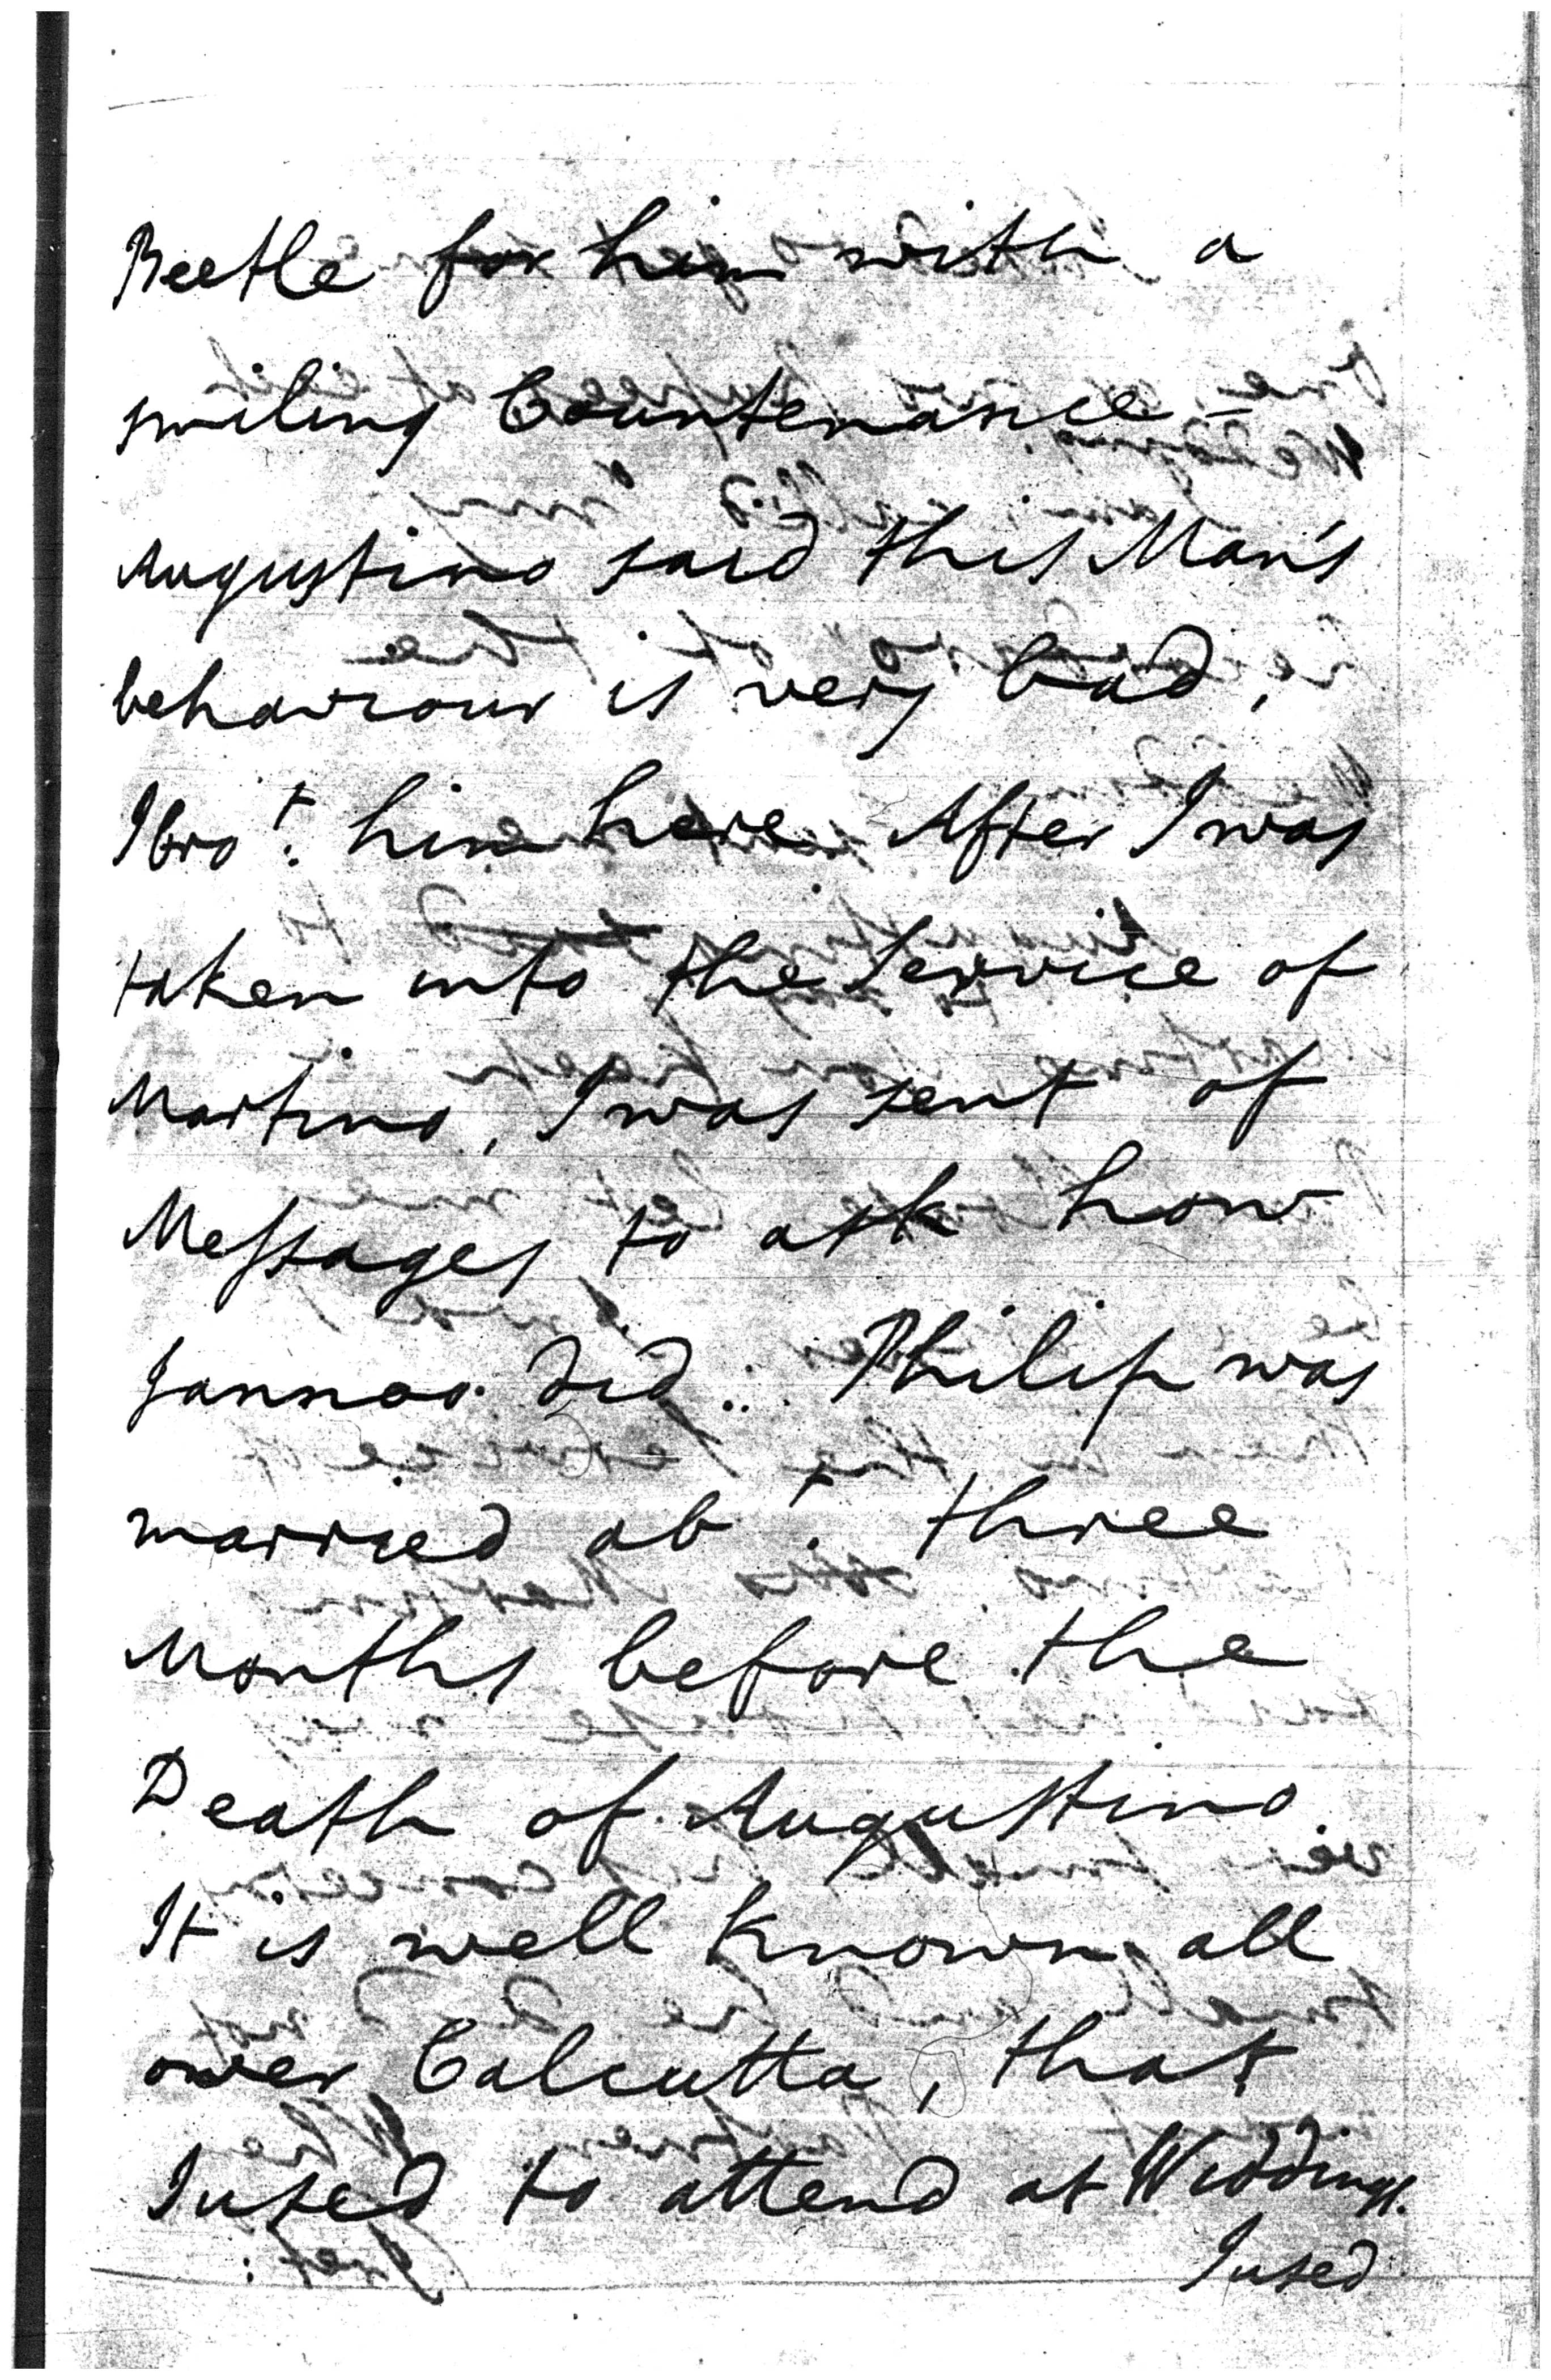 Beetle for him with a
smiling Countenance –
Augustino said this Man's
behaviour is very bad,
I bro.t him here After I was
taken into the Service of
Martino, I was sent of
Messages to ask how
Jannoo did... Philip was
married ab.t three
Months before the
Death of Augustino
It is well known all
over Calcutta, that
I used to attend at Weddings.
I used